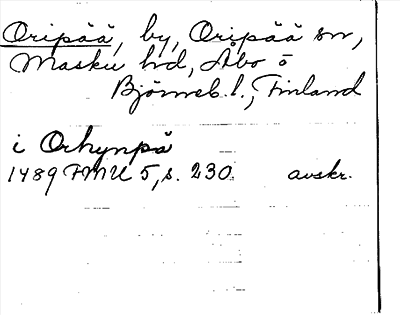 Oripää, by, Oripää sn,
Masku hd, Åbo o
Björneb. l., Finland
i Orhynpä
1489 FMU 5, s. 230. avskr.